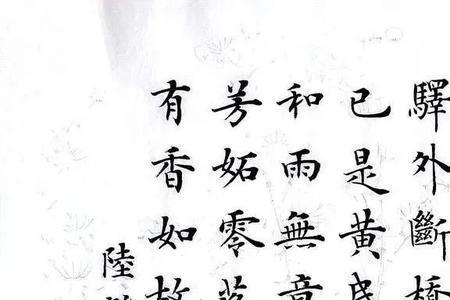 驛外斷橋
已是黃
和雨無意
芳妬零落
有香如故
陸